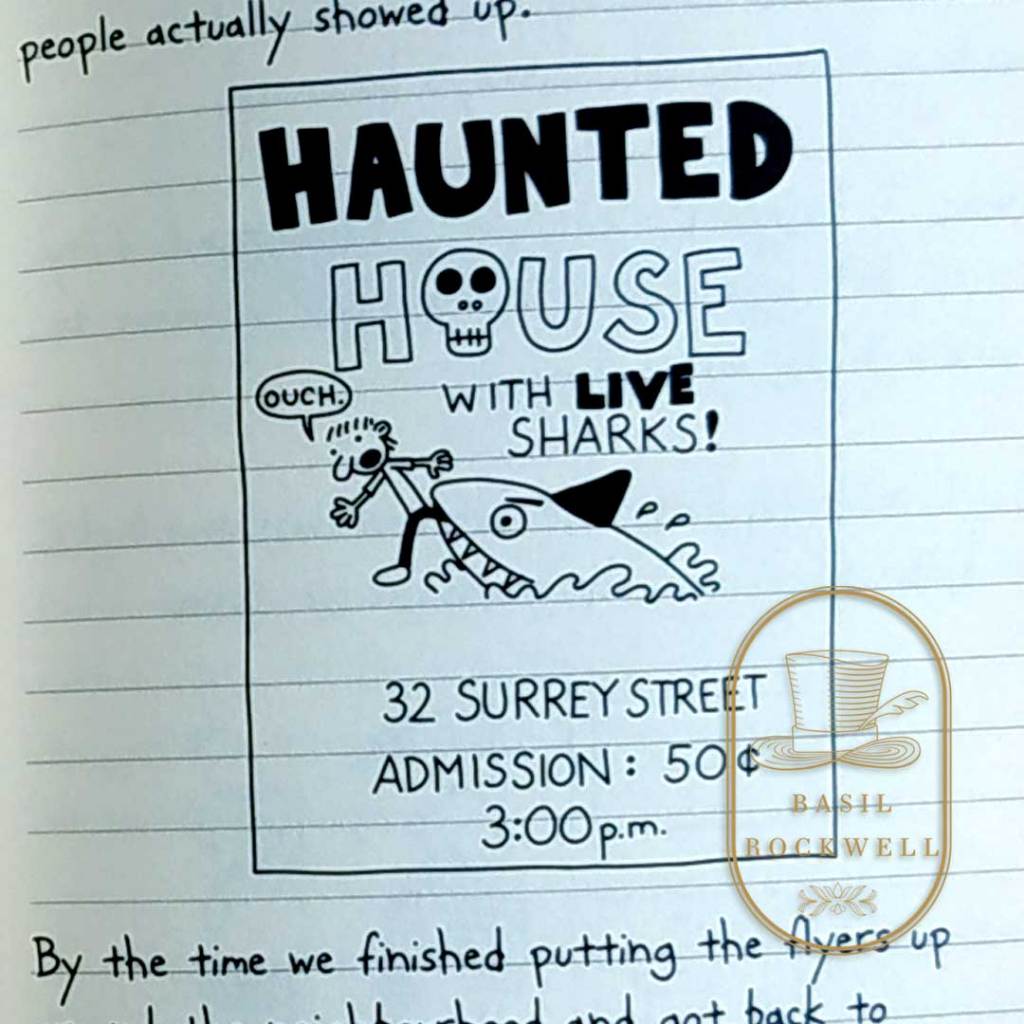 people actually showed up.
HAUNTED
HOUSE
OUCH.
WITH LIVE
SHARKS!
32 SURREY STREET
ADMISSION: 50¢
3:00 p.m.
BASIL
ROCKWELL
By the time we finished putting the flyers up
and got back to